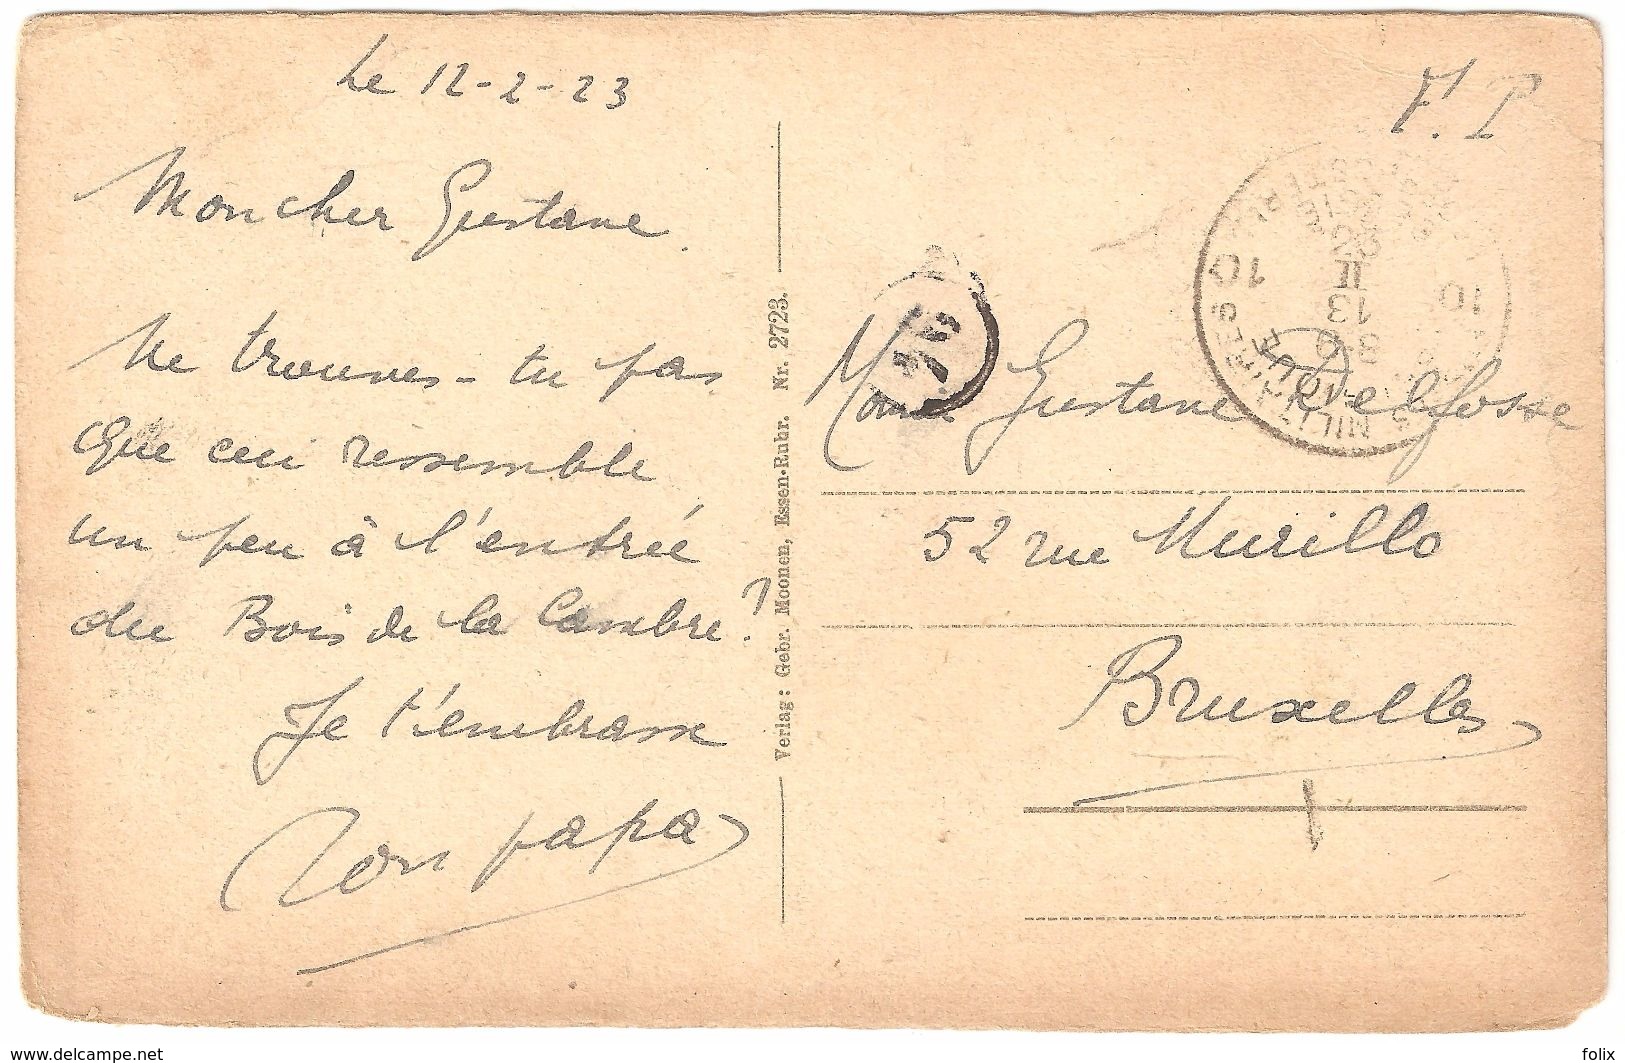 Le 12-2-23
F. P
Mon cher Gustave
Ne trouves-tu pas
que ceci ressemble
un peu à l'entrée
du Bois de la Cambre?
Je t'embrasse
Ton papa
Verlag: Gebr. Moonen, Essen-Ruhr. Nr. 2723.
10 10
II
13
8-9
Gustave Delfosse
52 rue Murillo
Bruxelles
www.delcampe.net
folix